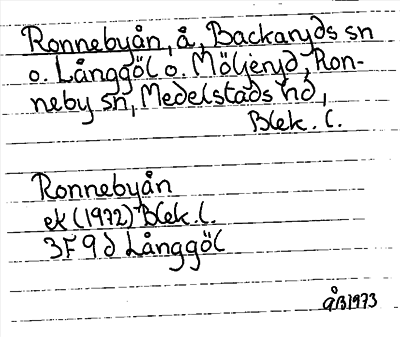 Ronnebyån, å, Backaryds sn
o. Långgöl o. Möljeryd, Ron-
neby sn, Medelstads hd,
Blek. l.
Ronnebyån
ek (1972) Blek. l.
3F 9d Långgöl
ÅB 1973